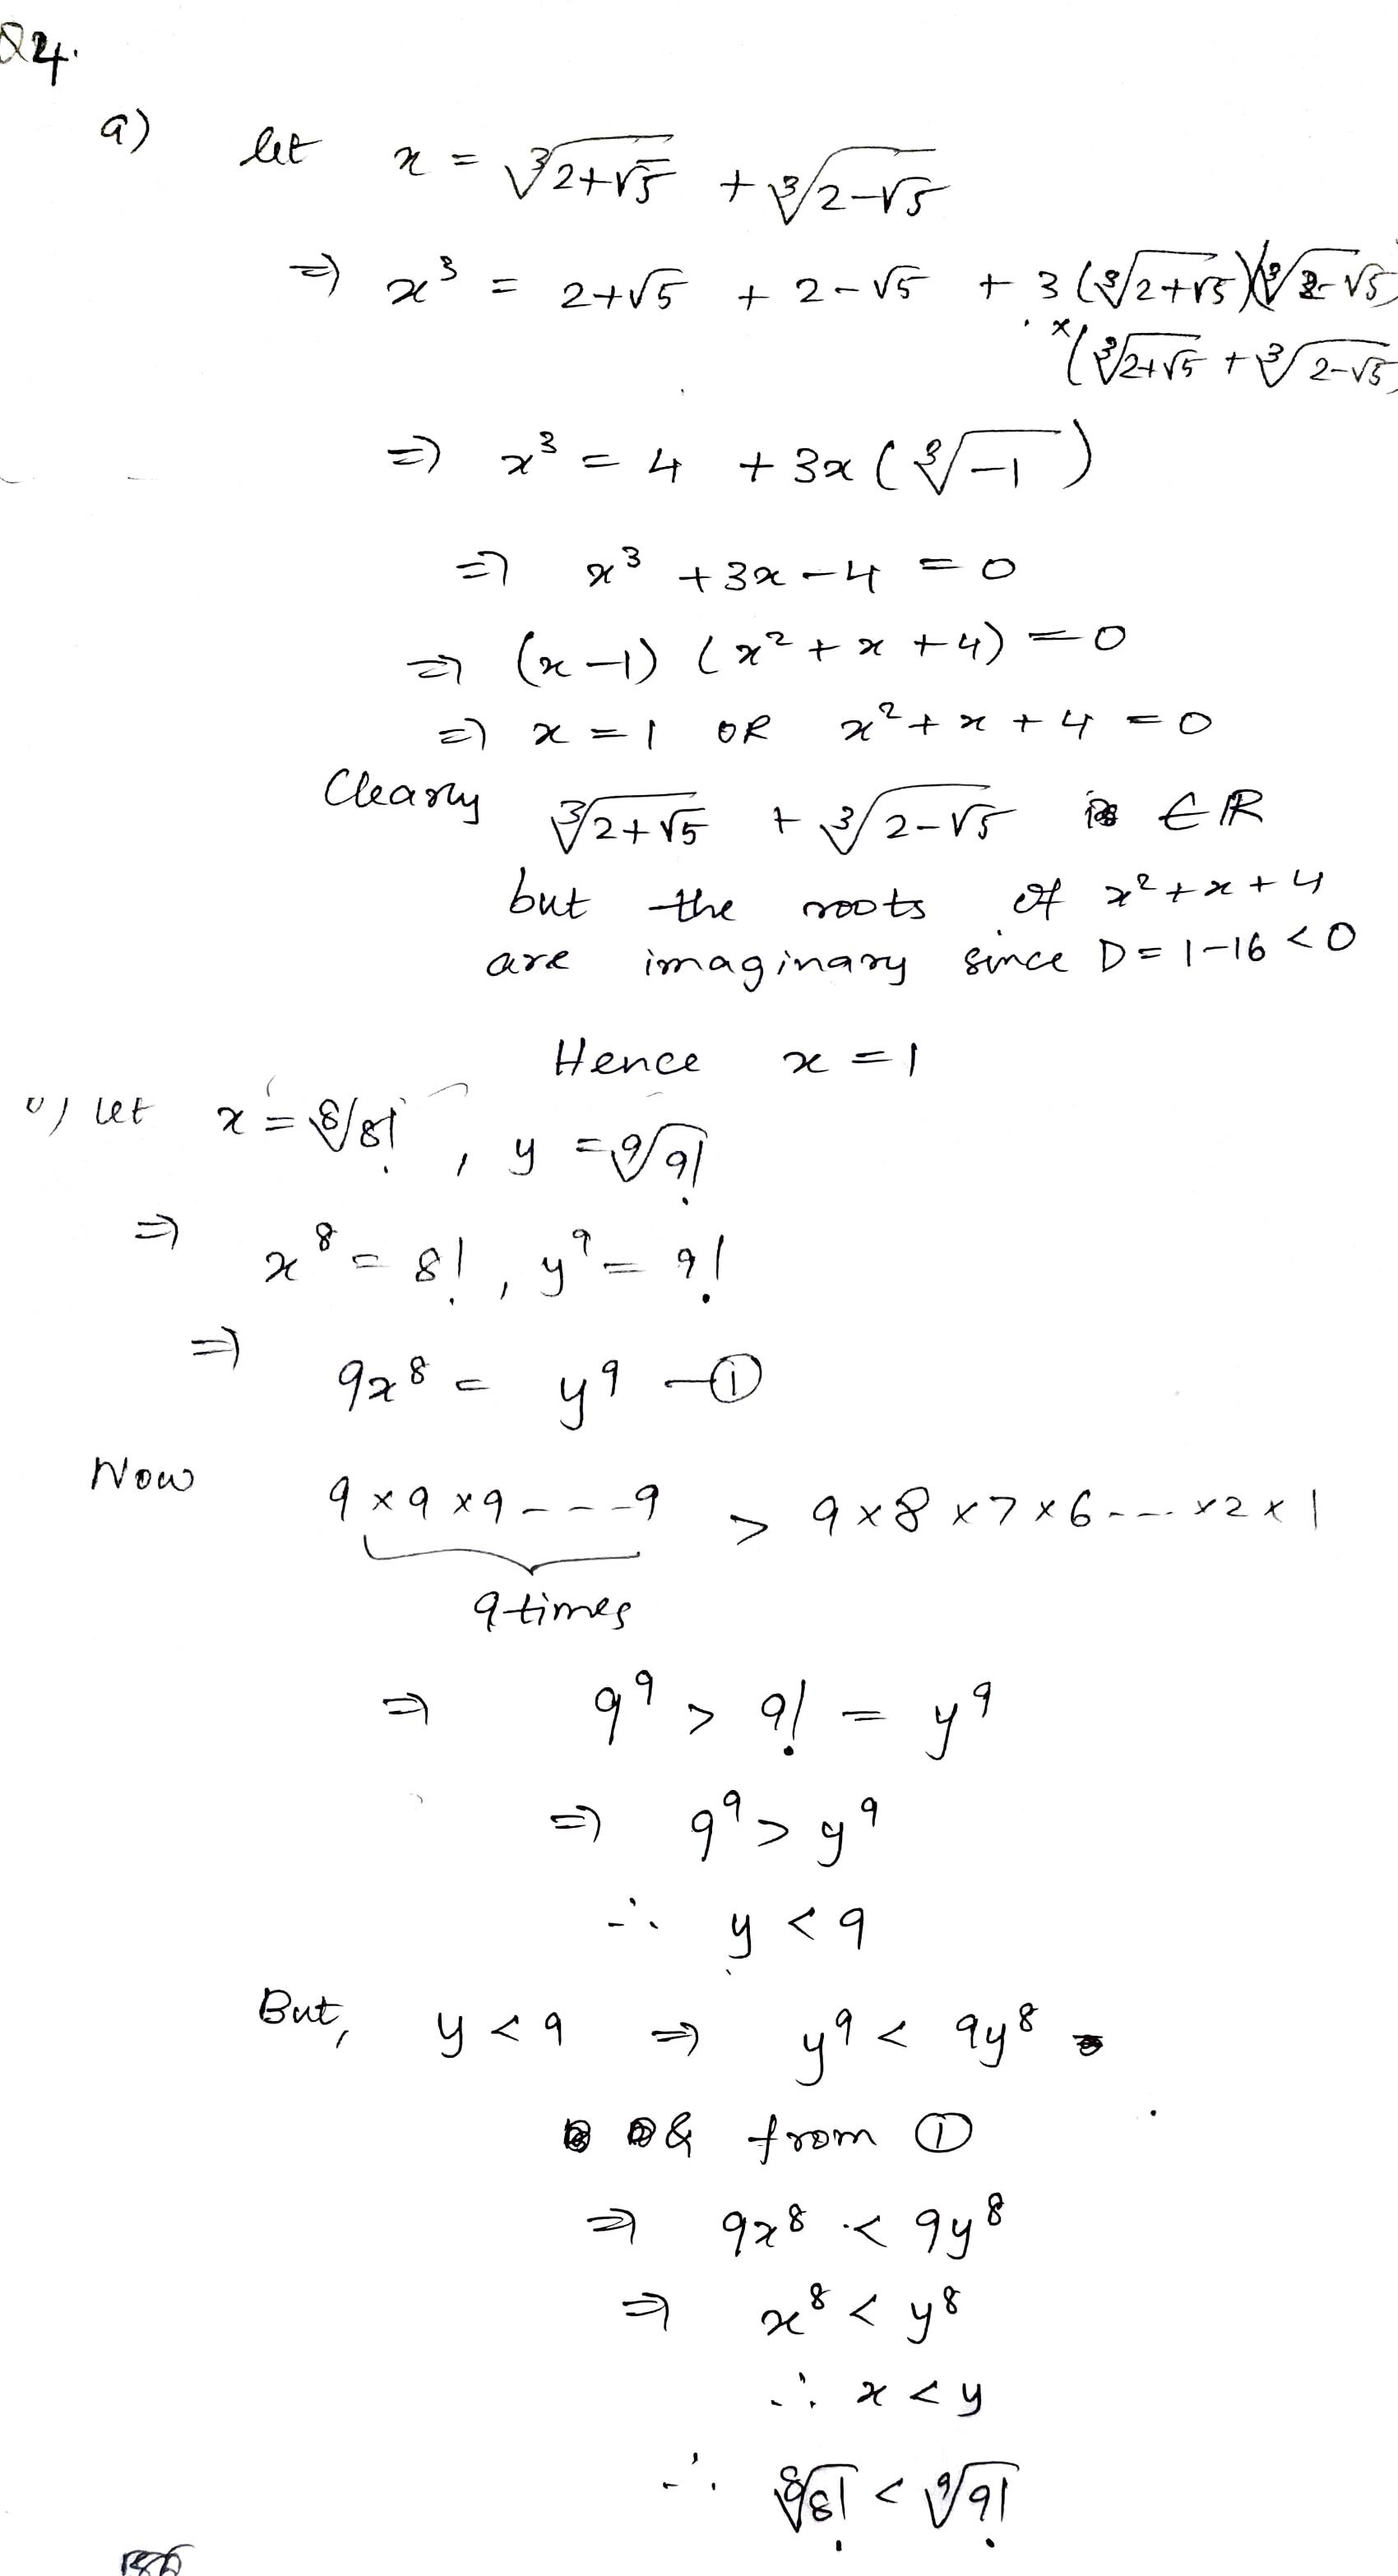 Q4.
a) let x = ∛(2+√5) + ∛(2-√5)
⇒ x³ = 2+√5 + 2-√5 + 3(∛(2+√5))(∛(2-√5)
×(∛(2+√5) + ∛(2-√5)
⇒ x³ = 4 + 3x(∛-1)
⇒ x³ + 3x - 4 = 0
⇒ (x-1) (x² + x + 4) = 0
⇒ x = 1 OR x² + x + 4 = 0
Clearly ∛(2+√5) + ∛(2-√5) ∈ ℝ
but the roots of x² + x + 4
are imaginary since D = 1-16 < 0
Hence x = 1
) let x = ⁸√8! , y = ⁹√9!
⇒ x⁸ = 8! , y⁹ = 9!
⇒ 9x⁸ = y⁹ - ①
Now 9 × 9 × 9 - - - 9 > 9 × 8 × 7 × 6 - - - × 2 × 1
9 times
⇒ 9⁹ > 9! = y⁹
⇒ 9⁹ > y⁹
∴ y < 9
But, y < 9 ⇒ y⁹ < 9y⁸
& from ①
⇒ 9x⁸ < 9y⁸
⇒ x⁸ < y⁸
∴ x < y
∴ ⁸√8! < ⁹√9!